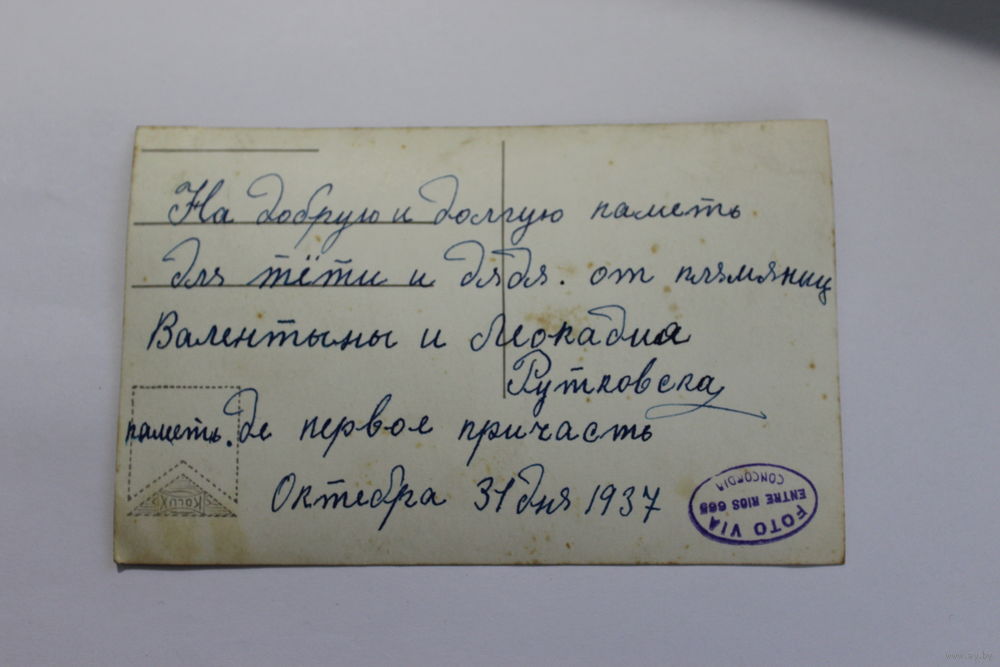 На добрую и долгую паметь
для тёти и дядя. от плямяниц
Валентыны и Леокадиа
Рутковска
паметь. де первое причасть
Октебра 31 дня 1937
FOTO VIA
ENTRE RIOS 665
CONCORDIA
KOLUX
www.ay.by